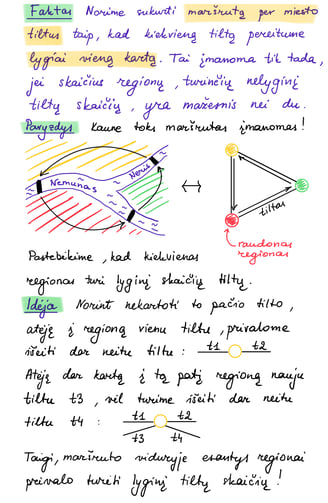 Faktas Norime sukurti maršrutą per miesto
tiltus taip, kad kiekvieną tiltą pereitume
lygiai vieną kartą. Tai įmanoma tik tada,
jei skaičius regionų, turinčių nelyginį
tiltų skaičių, yra mažesnis nei du.
Pavyzdys Kaune toks maršrutas įmanomas!
Nemunas
Neris
tiltas
raudonas
regionas
Pastebėkime, kad kiekvienas
regionas turi lyginį skaičių tiltų.
Idėja Norint nekartoti to pačio tilto,
atėję į regioną vienu tiltu, privalome
išeiti dar neitu tiltu: t1 t2
Atėję dar kartą į tą patį regioną nauju
tiltu t3, vėl turime išeiti dar neitu
tiltu t4: t1 t2
t3 t4
Taigi, maršruto viduryje esantys regionai
privalo turėti lyginį tiltų skaičių!